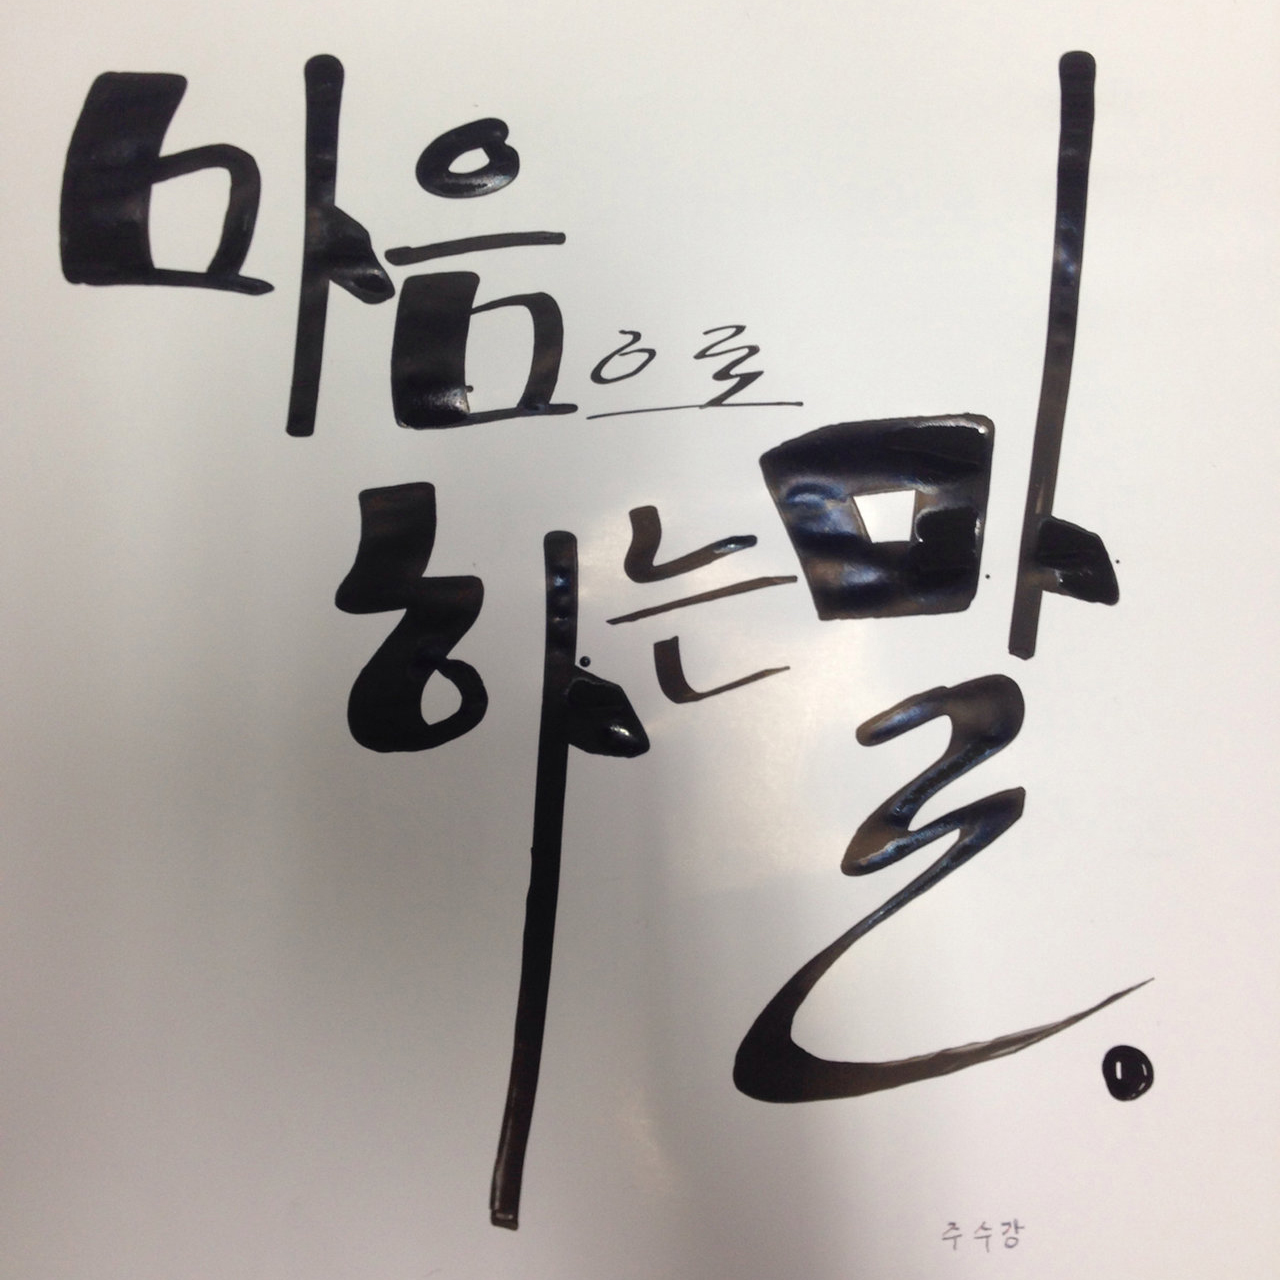 마음으로
하는 말.
주수강